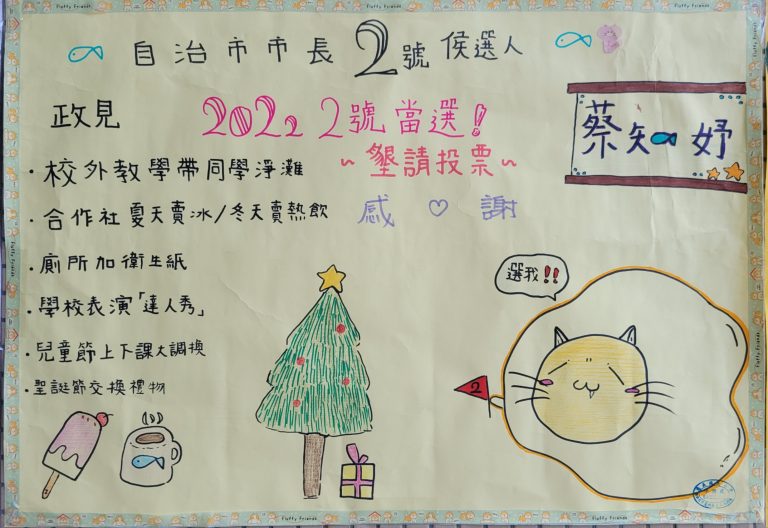 自治市市長2號候選人
政見
2022 2號當選!
蔡知妤
~墾請投票~
感♡謝
·校外教學帶同學淨灘
·合作社夏天賣冰/冬天賣熱飲
·廁所加衛生紙
·學校表演「達人秀」
·兒童節上下課大調換
·聖誕節交換禮物
選我!!
2
Fluffy Friends
Fluffy Friends
Fluffy Friends
Fluffy Friends